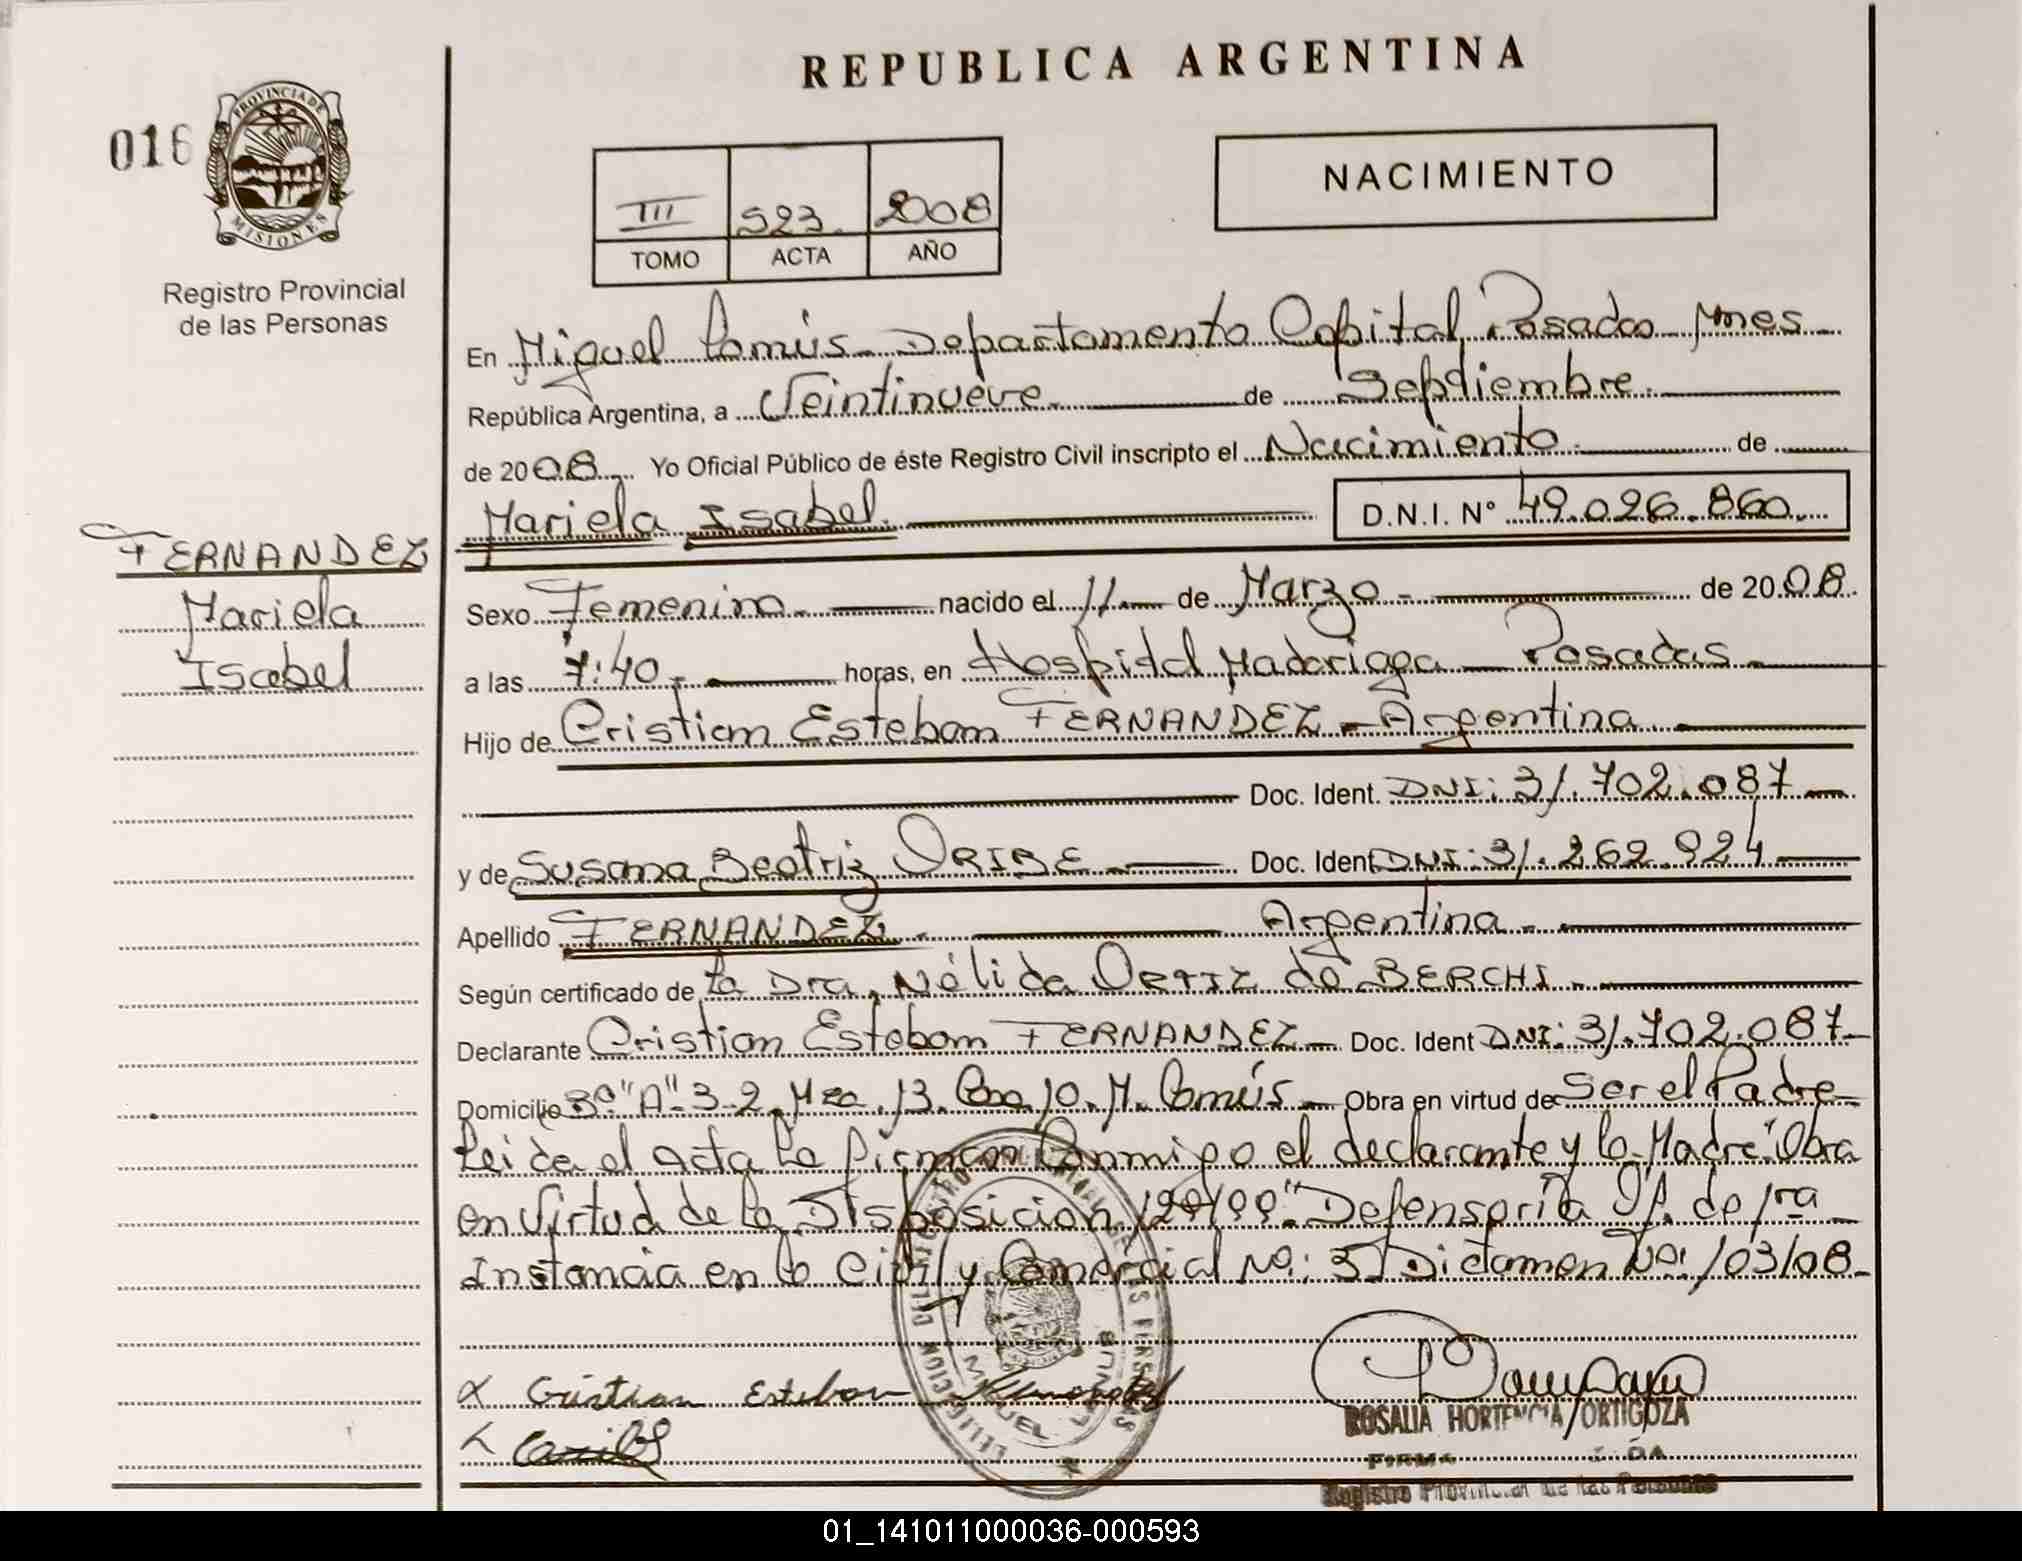 REPUBLICA ARGENTINA
016
PROVINCIA DE
MISIONES
Registro Provincial
de las Personas
III 523. 2008
TOMO ACTA AÑO
NACIMIENTO
En Miguel Lanús - Departamento Capital, Posadas Mnes -
República Argentina, a Veintinueve. de Sepdiembre.
de 2008. Yo Oficial Público de éste Registro Civil inscripto el Nacimiento. de
Mariela Isabel. D.N.I. N° 49.026.860.
FERNANDEZ
Mariela
Isabel
Sexo Femenino. nacido el 11 de Marzo - de 2008.
a las 7:40 - horas, en Hospital Madariaga - Posadas -
Hijo de Cristian Esteban FERNANDEZ - Argentina
Doc. Ident. DNI: 31.702.087
y de Susana Beatriz ORIBE Doc. Ident DNI: 31.262.924
Apellido FERNANDEZ. Argentina -
Según certificado de La Dra. Nélida ORTIZ de BERCHI.
Declarante Cristian Esteban FERNANDEZ - Doc. Ident DNI: 31.702.087-
Domicilio B° "A" 3-2. Mza. 13. Casa 10. M. Lanús - Obra en virtud de Ser el Padre-
Leida el acta la firman Conmigo el declarante y la Madre "Obra
en Virtud de la Disposición 129/99" Defensoría Of. de 1ra
Instancia en lo Civil y Comercial No: 3 Dictamen No: 103/08-
X Cristian Esteban Fernandez
ROSALIA HORTENCIA ORTIGOZA
FIRMA
Registro Provincial de las Personas
01_141011000036-000593